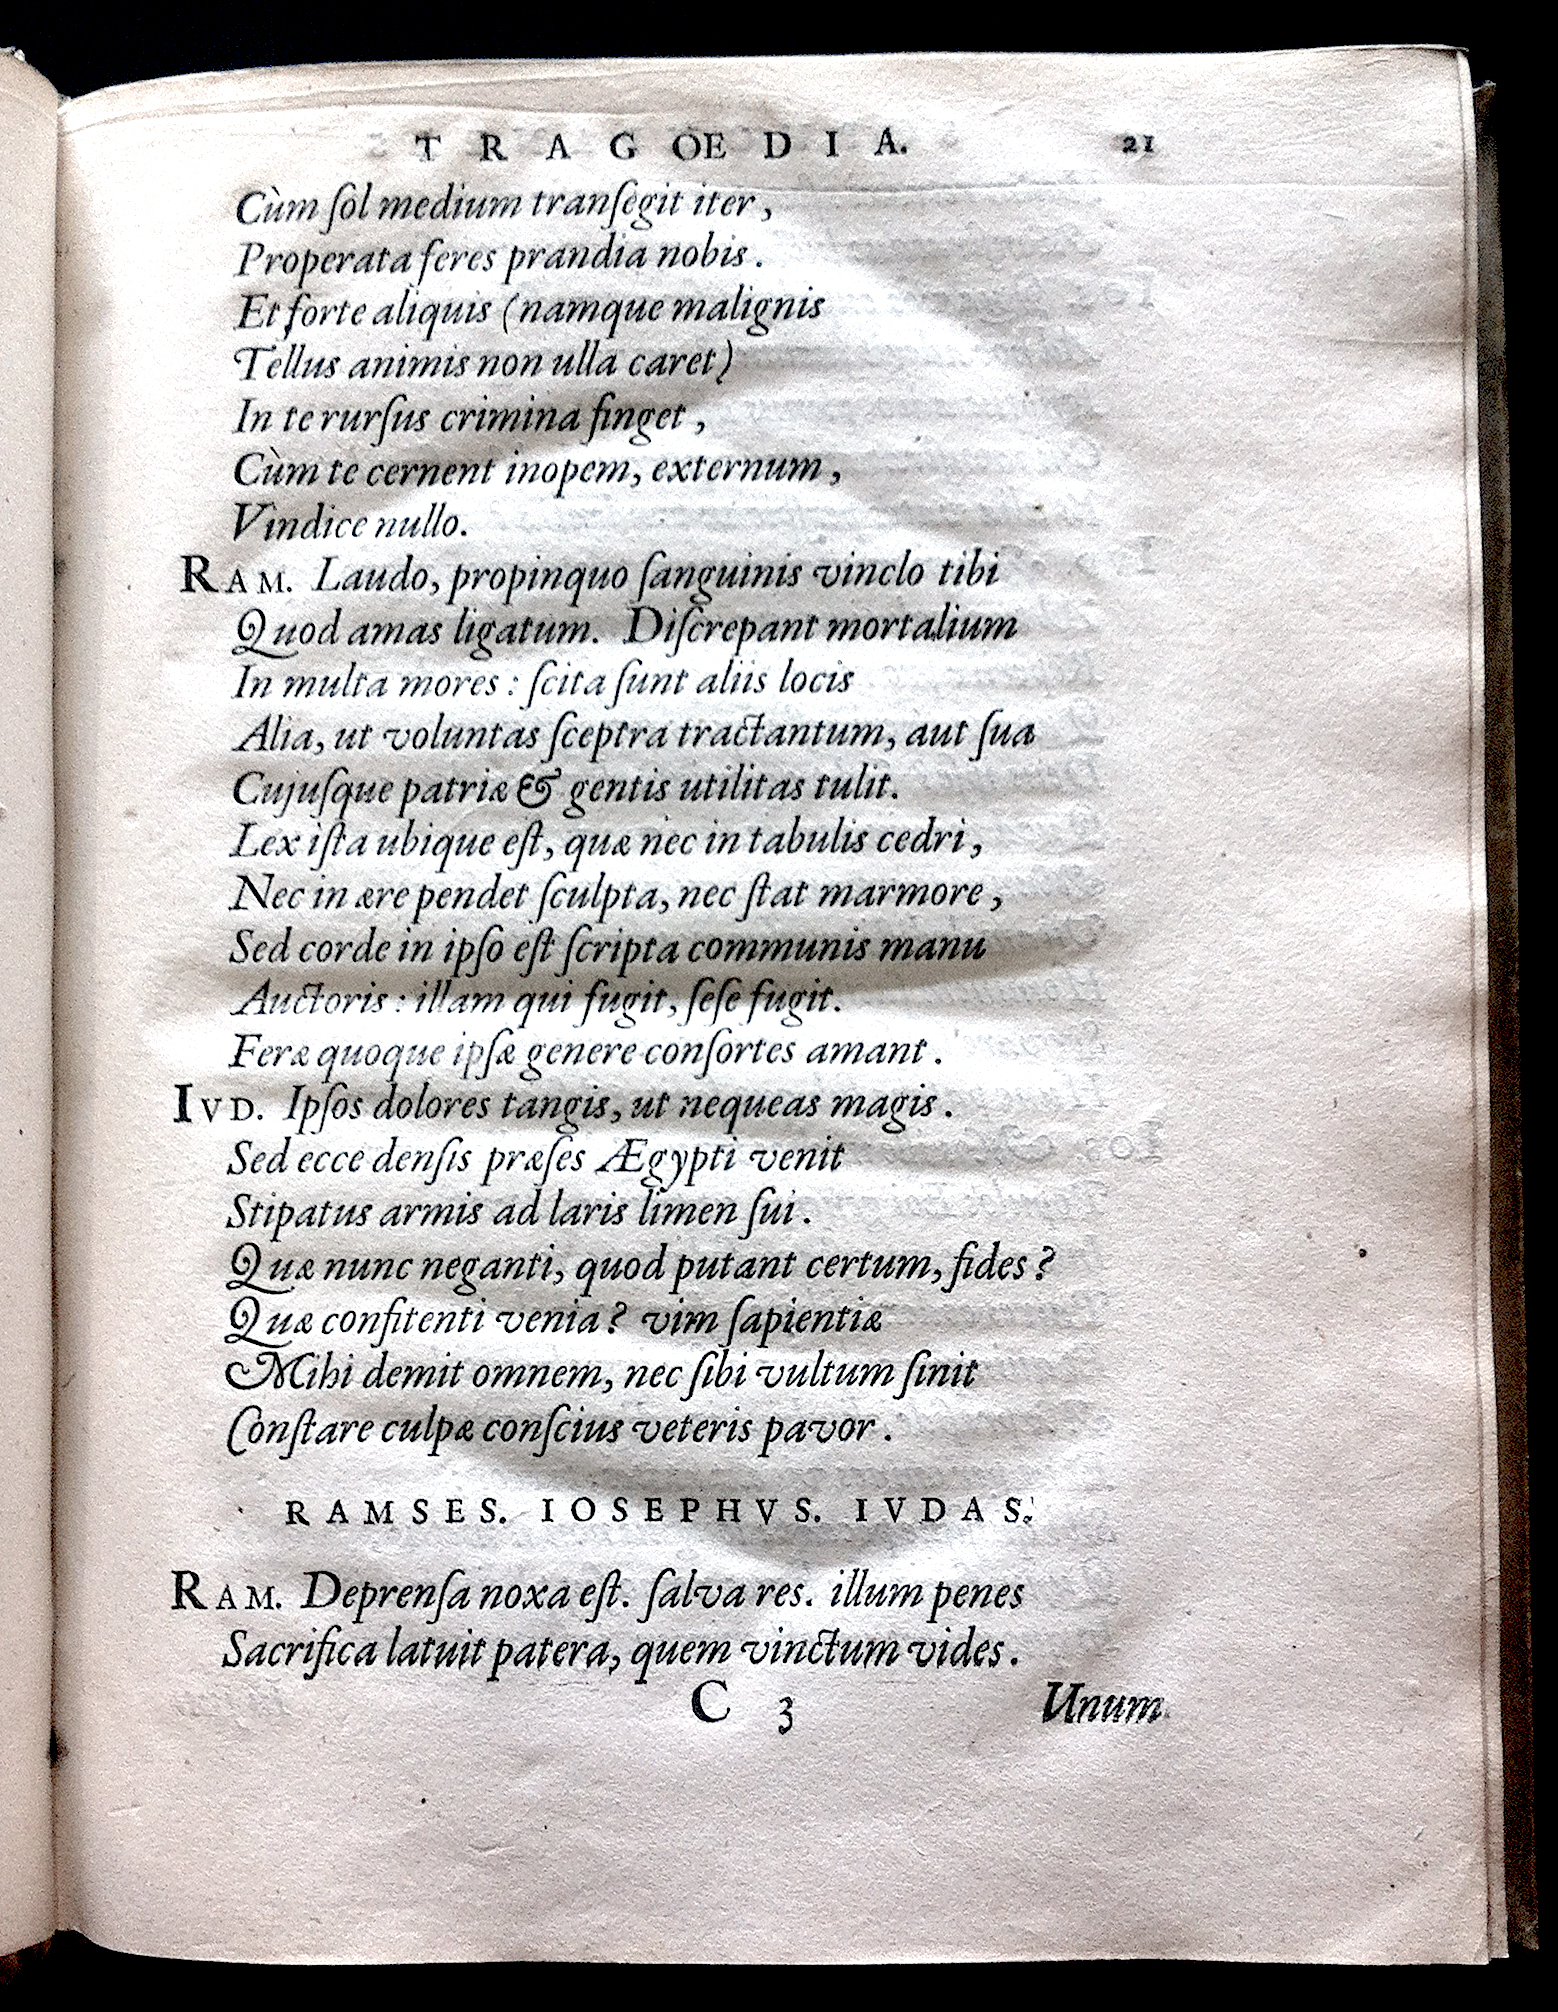 TRAGOEDIA. 21
Cùm ſol medium tranſegit iter,
Properata feres prandia nobis.
Et forte aliquis (namque malignis
Tellus animis non ulla caret)
In te rurſus crimina finget,
Cùm te cernent inopem, externum,
Vindice nullo.
RAM. Laudo, propinquo ſanguinis vinclo tibi
Quod amas ligatum. Diſcrepant mortalium
In multa mores: ſcita ſunt aliis locis
Alia, ut voluntas ſceptra tractantum, aut ſua
Cujuſque patriæ & gentis utilitas tulit.
Lex iſta ubique eſt, quæ nec in tabulis cedri,
Nec in ære pendet ſculpta, nec ſtat marmore,
Sed corde in ipſo eſt ſcripta communis manu
Auctoris: illam qui fugit, ſeſe fugit.
Feræ quoque ipſæ genere conſortes amant.
IVD. Ipſos dolores tangis, ut nequeas magis.
Sed ecce denſis præſes Ægypti venit
Stipatus armis ad laris limen ſui.
Quæ nunc neganti, quod putant certum, fides?
Quæ confitenti venia? vim ſapientiæ
Mihi demit omnem, nec ſibi vultum ſinit
Conſtare culpæ conſcius veteris pavor.
RAMSES. IOSEPHVS. IVDAS.
RAM. Deprenſa noxa eſt. ſalva res. illum penes
Sacrifica latuit patera, quem vinctum vides.
C 3 Unum